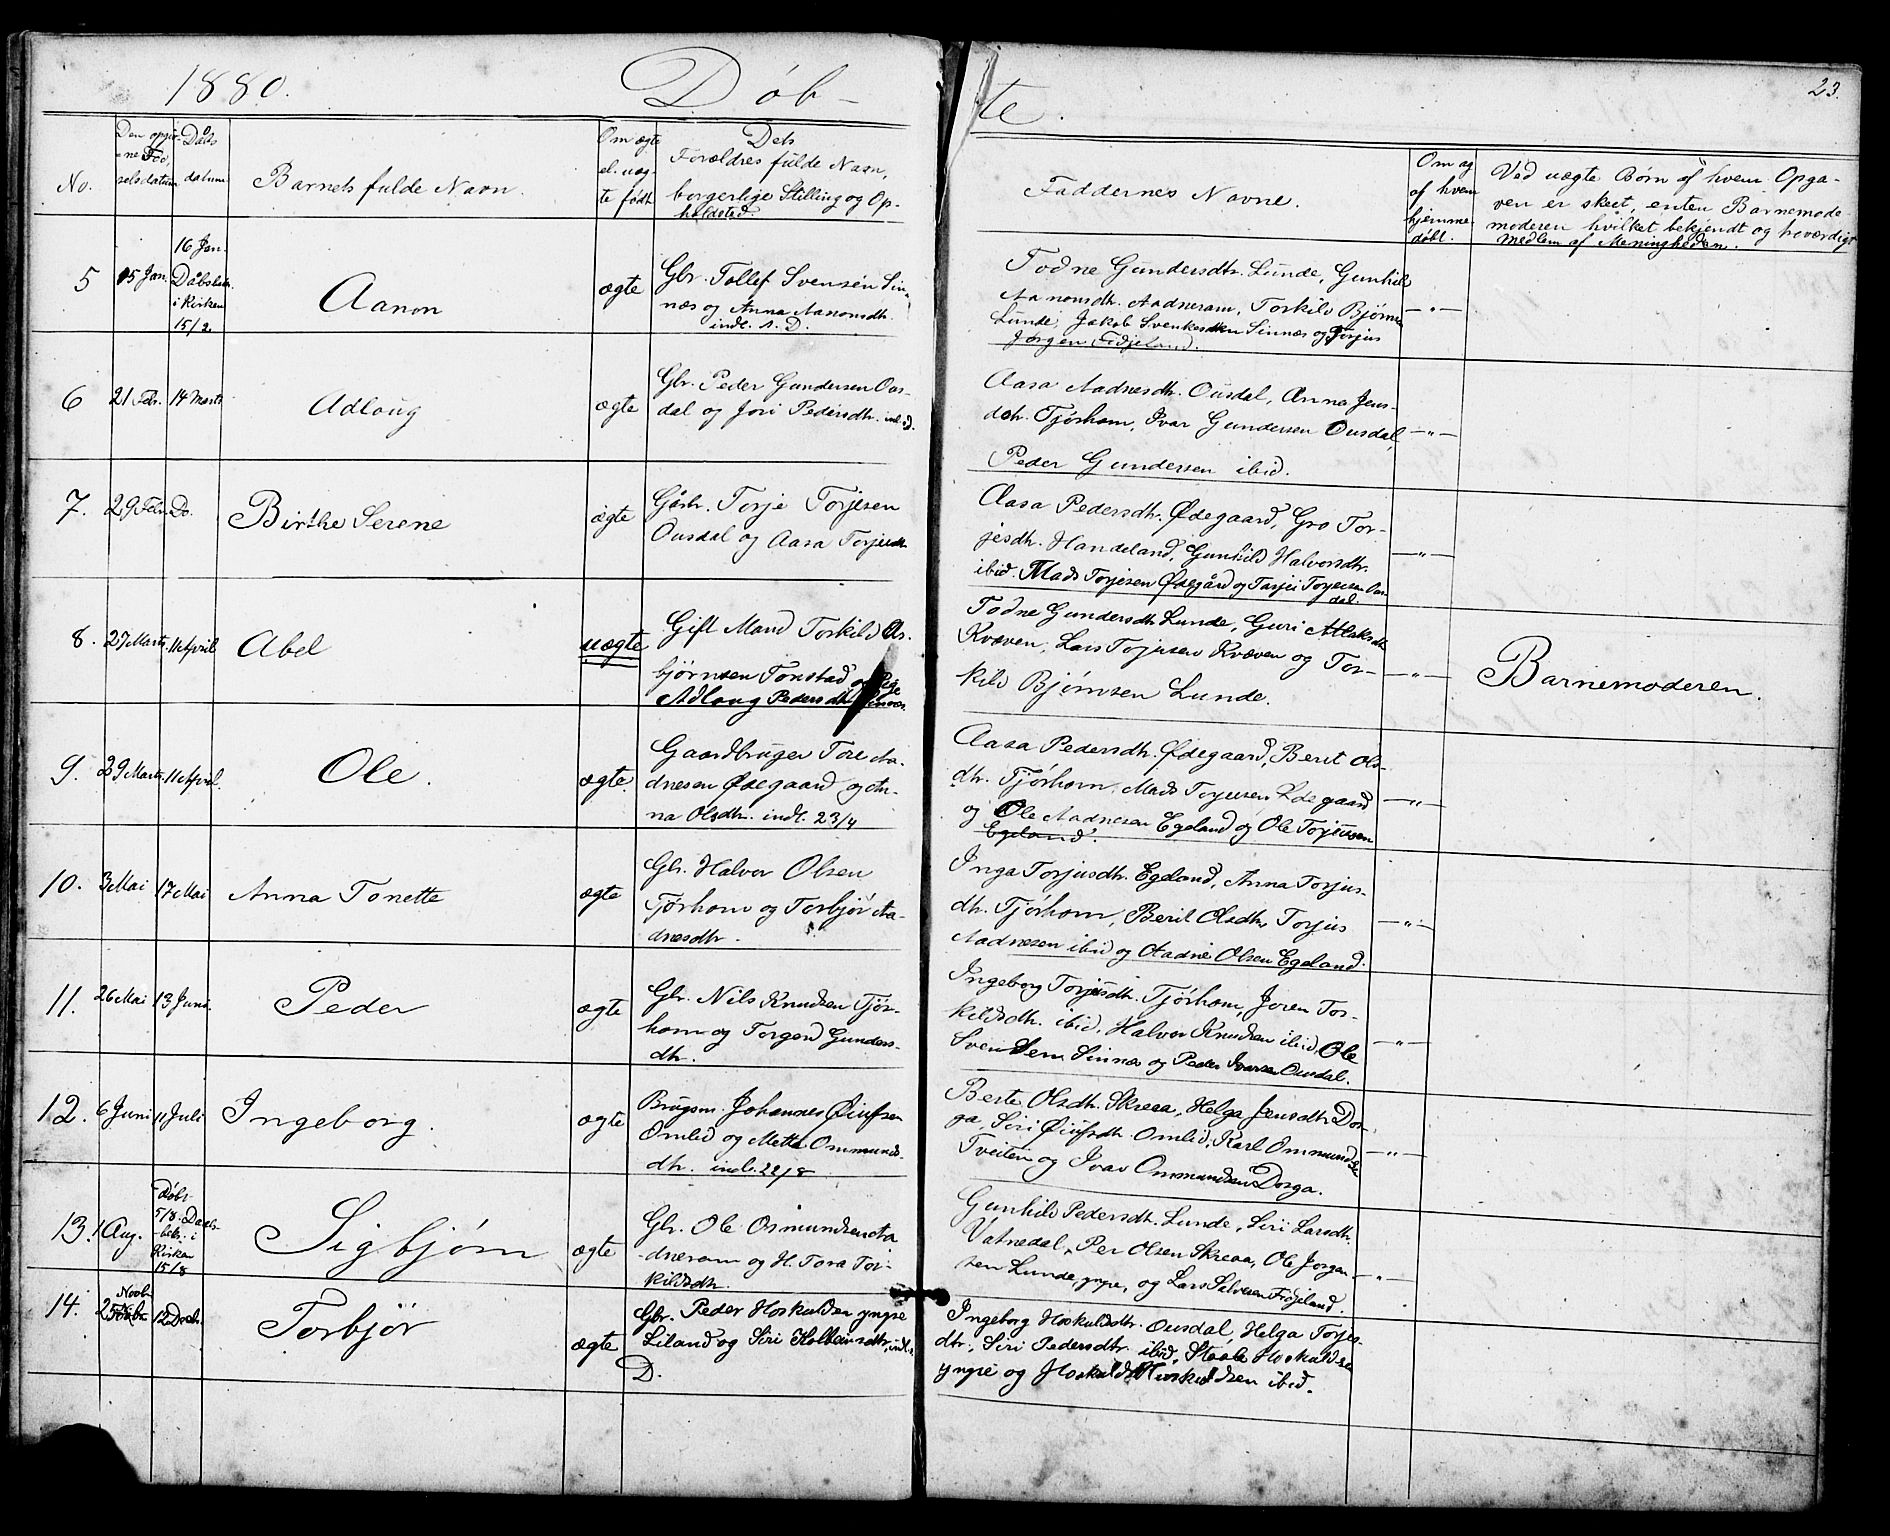 1880.
Døb-
te.
23.
No.
Den opgiv-
ne Fød-
selsdatum
Dåbs
datum
Barnets fulde Navn.
Om ægte
el. uæg-
te født
Dets
Forældres fulde Navn,
borgerlige Stilling og Op-
holdsted.
Faddernes Navne.
Om og
af hvem
hjemme
døbt.
Ved uægte Børn af hvem Opga-
ven er skeet, enten Barnemode
moderen hvilket bekjendt og hæderdigt
Medlem af Menigheden.
5
15 Jan.
16 Jan.
Dåbsbekr.
i Kirken
15/2
Aanon
ægte
Gbr. Tollef Svensen Sin-
næs og Anna Aanonsdh.
indl. s. D.
Todne Gundersdtr. Lunde, Gunhil
Aanonsdh. Aadneram, Torkild Bjørns
Lunde, Jakob Svenkesen Sinnæs og Torjus
Jørgen Fidjeland.
—"—
6
21 Febr.
14 Marts
Adloug
ægte
Gbr. Peder Gundersen Ous-
dal og Jori Pedersdh. indl. s. D.
Aasa Aadnesdh. Ousdal, Anna Jens-
dch. Tjørhom, Ivar Gundersen Ousdal,
Peder Gundersen ibid.
—"—
7.
29 Febr.
Do.
Birthe Serene
ægte
Gårb. Torje Torjesen
Ousdal og Aasa Torjesdh
Aasa Pedersdh. Ødegaard, Gro Tor-
jesdh. Handeland, Gunhild Halvorsdtr.
ibid. Mads Torjesen Ødegård og Tarjei Torjesen Ous
dal.
—"—
8.
27 Marts
11 April
Abel
uægte
Gift Mand Torkild As-
bjørnsen Tonstad og Pige
Adloug Pedersdh. Sinnæs.
Todne Gundersdh Lunde, Guri Atlaksdh
Kvæven, Lars Torjusen Kvæven og Tor-
kild Bjørnsen Lunde.
—"—
Barnemoderen.
9.
29 Marts
11 April.
Ole.
ægte.
Gaardbruger Tore Aa-
dnesen Ødegaard og An-
na Olsdh. indl. 23/4
Aasa Pedersdh. Ødegaard, Berit Ols-
dh. Tjørhom, Mads Torjusen Ødegaard
og Ole Aadnesen Egeland og Ole Torjussen
Egeland.
—"—
10.
3 Mai
17 Mai
Anna Tonette
ægte
Gbr. Halvor Olsen
Tjørhom og Torbjør Aa-
dnesdh.
Inga Torjusdh. Egeland, Anna Torjus-
dh. Tjørhom, Berit Olsdh, Torjus
Aadnesen ibid og Aadne Olsen Egeland.
—"—
11.
26 Mai
13 Juni.
Peder
ægte
Gbr. Nils Knudsen Tjør-
hom og Torgerd Gunders-
dh.
Ingeborg Torjusdh. Tjørhom, Joren Tor-
kildsdh. ibid, Halvor Knudsen ibid, Ole
Svendsen Sinnæs og Peder Ivarsen Ousdal.
—"—
12.
6 Juni
11 Juli
Ingeborg.
ægte
Brugsm. Johannes Øiufsen
Omlid og Mette Ommunds-
dh. indl. 22/8
Berte Olsdh. Skreaa, Helga Jensdh Dor-
ga, Siri Øiufsdh Omlid, Karl Ommundsen
Tveiten og Ivar Ommundsen Dorga.
—"—
13.
1 Aug.
Døbt
5/8. Daabs-
bekr. i
Kirken
15/8
Sigbjørn
ægte
Gbr. Ole Osmundsen Aa
dneram og H. Tora Tor-
kildsdh.
Gunhild Pedersdh. Lunde, Siri Larsdh.
Vatnedal, Per Olsen Skreaa, Ole Jørgen-
sen Lunde, yngre, og Lars Salvesen Frøjeland.
—"—
14.
Novb.
25
12 Decbr.
Torbjør
ægte
Gbr. Peder Hoskuldsen yngre
Liland og Siri Kolbeinsdtr, indl. s.
D.
Ingeborg Hoskuldsdtr. Ousdal, Helga Torjes-
dtr, Siri Pedersdtr. ibid, Staale Hoskuldsen
yngre og Hoskuld Hoskuldsen ibid.